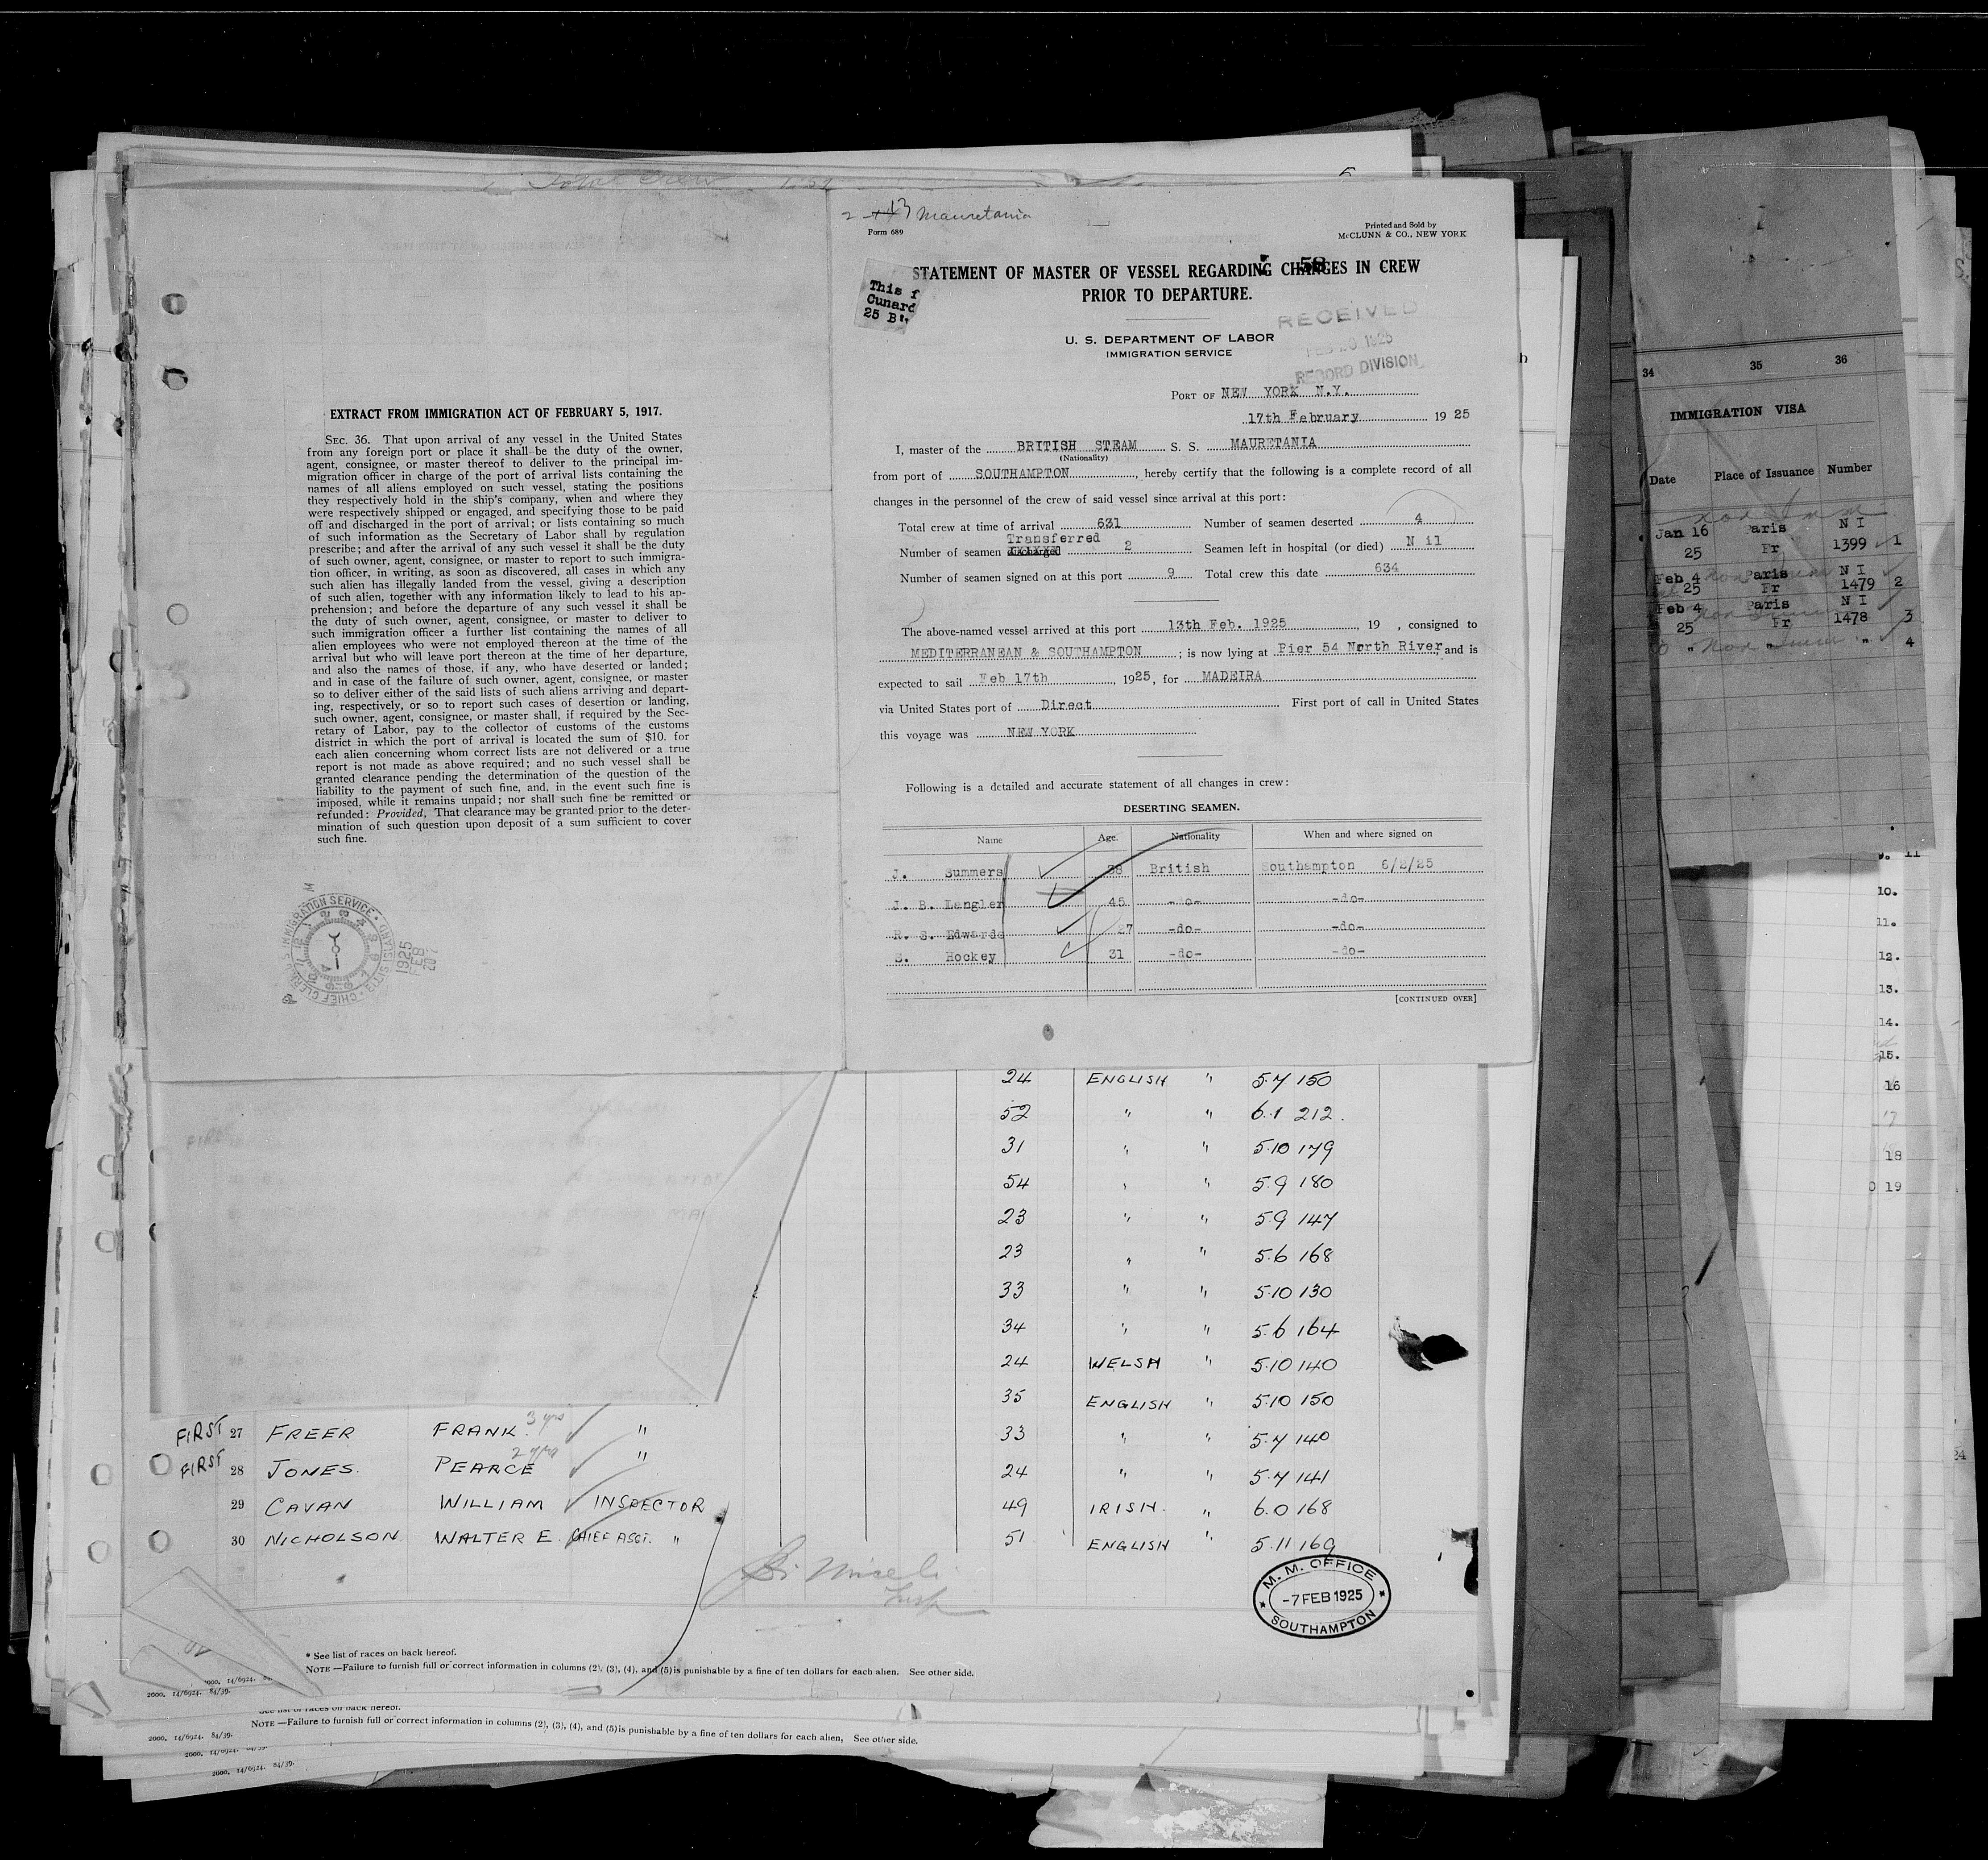 2 13 Mauretania
Form 689
Printed and Sold by
McCLUNN & CO., NEW YORK
58
STATEMENT OF MASTER OF VESSEL REGARDING CHANGES IN CREW
PRIOR TO DEPARTURE.
This f
Cunard
25 B
U. S. DEPARTMENT OF LABOR
IMMIGRATION SERVICE
RECEIVED
FEB 20 1925
RECORD DIVISION
PORT OF NEW YORK N.Y.
17th February 1925
I, master of the BRITISH STEAM S. S. MAURETANIA
(Nationality)
from port of SOUTHAMPTON, hereby certify that the following is a complete record of all
changes in the personnel of the crew of said vessel since arrival at this port:
Total crew at time of arrival 631 Number of seamen deserted 4
Transferred
Number of seamen discharged 2 Seamen left in hospital (or died) Nil
Number of seamen signed on at this port 9 Total crew this date 634
The above-named vessel arrived at this port 13th Feb. 1925, 19 , consigned to
MEDITERRANEAN & SOUTHAMPTON; is now lying at Pier 54 North River, and is
expected to sail Feb 17th, 1925, for MADEIRA
via United States port of Direct First port of call in United States
this voyage was NEW YORK
Following is a detailed and accurate statement of all changes in crew:
DESERTING SEAMEN.
Name Age. Nationality When and where signed on
J. Summers 38 British Southampton 6/2/25
J. B. Langler 45 -do- -do-
R. S. Edwards 27 -do- -do-
S. Hockey 31 -do- -do-
[CONTINUED OVER]
EXTRACT FROM IMMIGRATION ACT OF FEBRUARY 5, 1917.
SEC. 36. That upon arrival of any vessel in the United States
from any foreign port or place it shall be the duty of the owner,
agent, consignee, or master thereof to deliver to the principal im-
migration officer in charge of the port of arrival lists containing the
names of all aliens employed on such vessel, stating the positions
they respectively hold in the ship's company, when and where they
were respectively shipped or engaged, and specifying those to be paid
off and discharged in the port of arrival; or lists containing so much
of such information as the Secretary of Labor shall by regulation
prescribe; and after the arrival of any such vessel it shall be the duty
of such owner, agent, consignee, or master to report to such immigra-
tion officer, in writing, as soon as discovered, all cases in which any
such alien has illegally landed from the vessel, giving a description
of such alien, together with any information likely to lead to his ap-
prehension; and before the departure of any such vessel it shall be
the duty of such owner, agent, consignee, or master to deliver to
such immigration officer a further list containing the names of all
alien employees who were not employed thereon at the time of the
arrival but who will leave port thereon at the time of her departure,
and also the names of those, if any, who have deserted or landed;
and in case of the failure of such owner, agent, consignee, or master
so to deliver either of the said lists of such aliens arriving and depart-
ing, respectively, or so to report such cases of desertion or landing,
such owner, agent, consignee, or master shall, if required by the Sec-
retary of Labor, pay to the collector of customs of the customs
district in which the port of arrival is located the sum of $10. for
each alien concerning whom correct lists are not delivered or a true
report is not made as above required; and no such vessel shall be
granted clearance pending the determination of the question of the
liability to the payment of such fine, and, in the event such fine is
imposed, while it remains unpaid; nor shall such fine be remitted or
refunded: Provided, That clearance may be granted prior to the deter-
mination of such question upon deposit of a sum sufficient to cover
such fine.
1925
FEB
34 35 36
IMMIGRATION VISA
Date Place of Issuance Number
Jan 16 Paris N I
25 Fr 1399 1
Feb 4 Paris N I
25 Fr 1479 2
Feb 4 Paris N I
25 Fr 1478 3
" " " 4
10.
11.
12.
13.
14.
15.
16
17
18
19
24 ENGLISH " 5.7 150
52 " " 6.1 212.
31 " " 5.10 179
54 " " 5.9 180
23 " " 5.9 147
23 " " 5.6 168
33 " " 5.10 130
34 " " 5.6 164
24 WELSH " 5.10 140
35 ENGLISH " 5.10 150
FIRST 27 FREER FRANK 3 yrs " 33 " " 5.7 140
FIRST 28 JONES. PEARCE 2 yrs " 24 " " 5.7 141
29 CAVAN WILLIAM INSPECTOR 49 IRISH. " 6.0 168
30 NICHOLSON WALTER E. CHIEF ASST. " 51 ENGLISH " 5.11 169
M. M. OFFICE
-7 FEB 1925
SOUTHAMPTON
* See list of races on back hereof.
NOTE —Failure to furnish full or correct information in columns (2), (3), (4), and (5) is punishable by a fine of ten dollars for each alien. See other side.
2000. 14/6924. 84/39.
NOTE —Failure to furnish full or correct information in columns (2), (3), (4), and (5) is punishable by a fine of ten dollars for each alien, See other side.
2000. 14/6924. 84/39.
2000. 14/6924. 84/39.